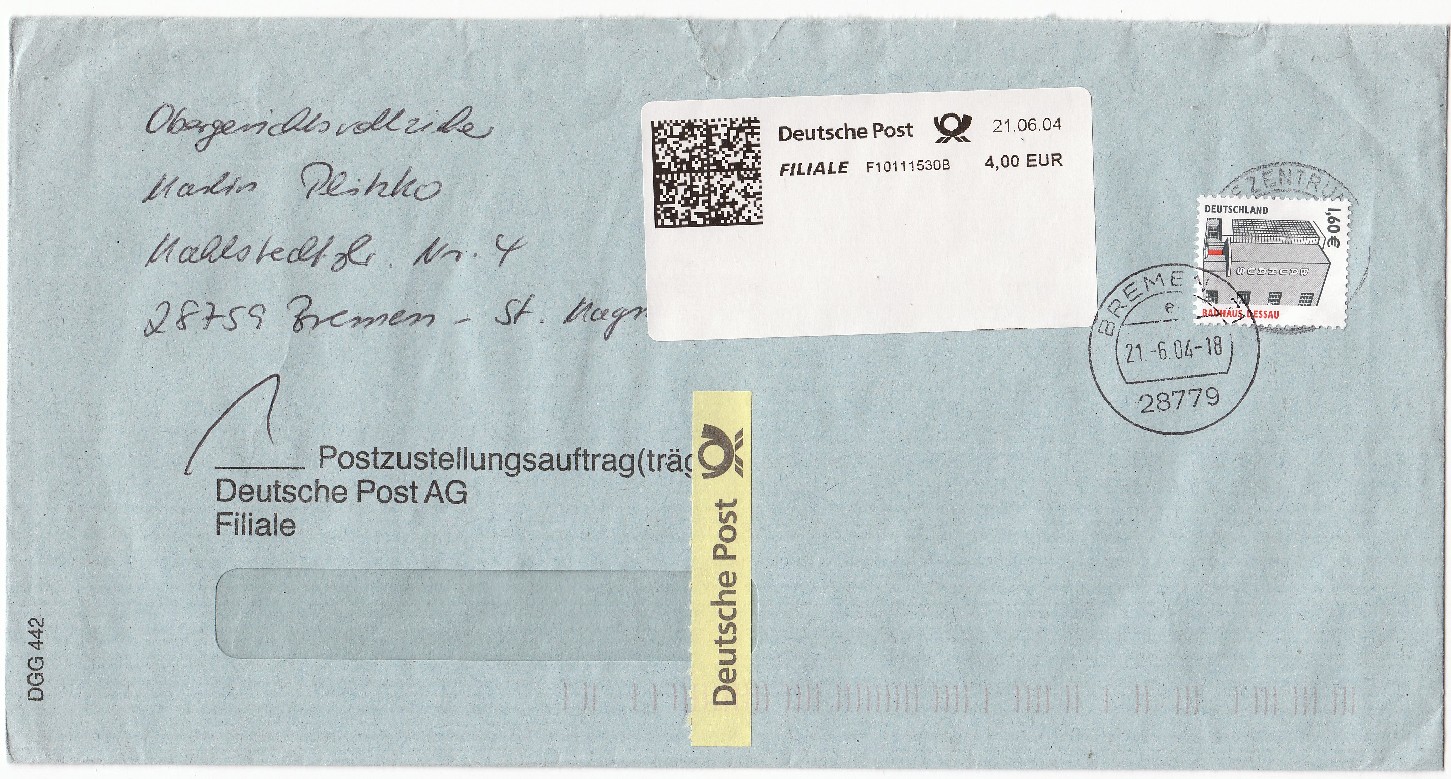 Obergerichtsvollzieher
Martin Plitzko
Mahlstedtstr. Nr. 4
28759 Bremen - St. Magn
Deutsche Post 21.06.04
FILIALE F10111530B 4,00 EUR
EZENTRU
DEUTSCHLAND
1,60 €
BAUHAUS DESSAU
BREMEN
21.-6.04-18
28779
Postzustellungsauftrag(träg
Deutsche Post AG
Filiale
Deutsche Post
DGG 442